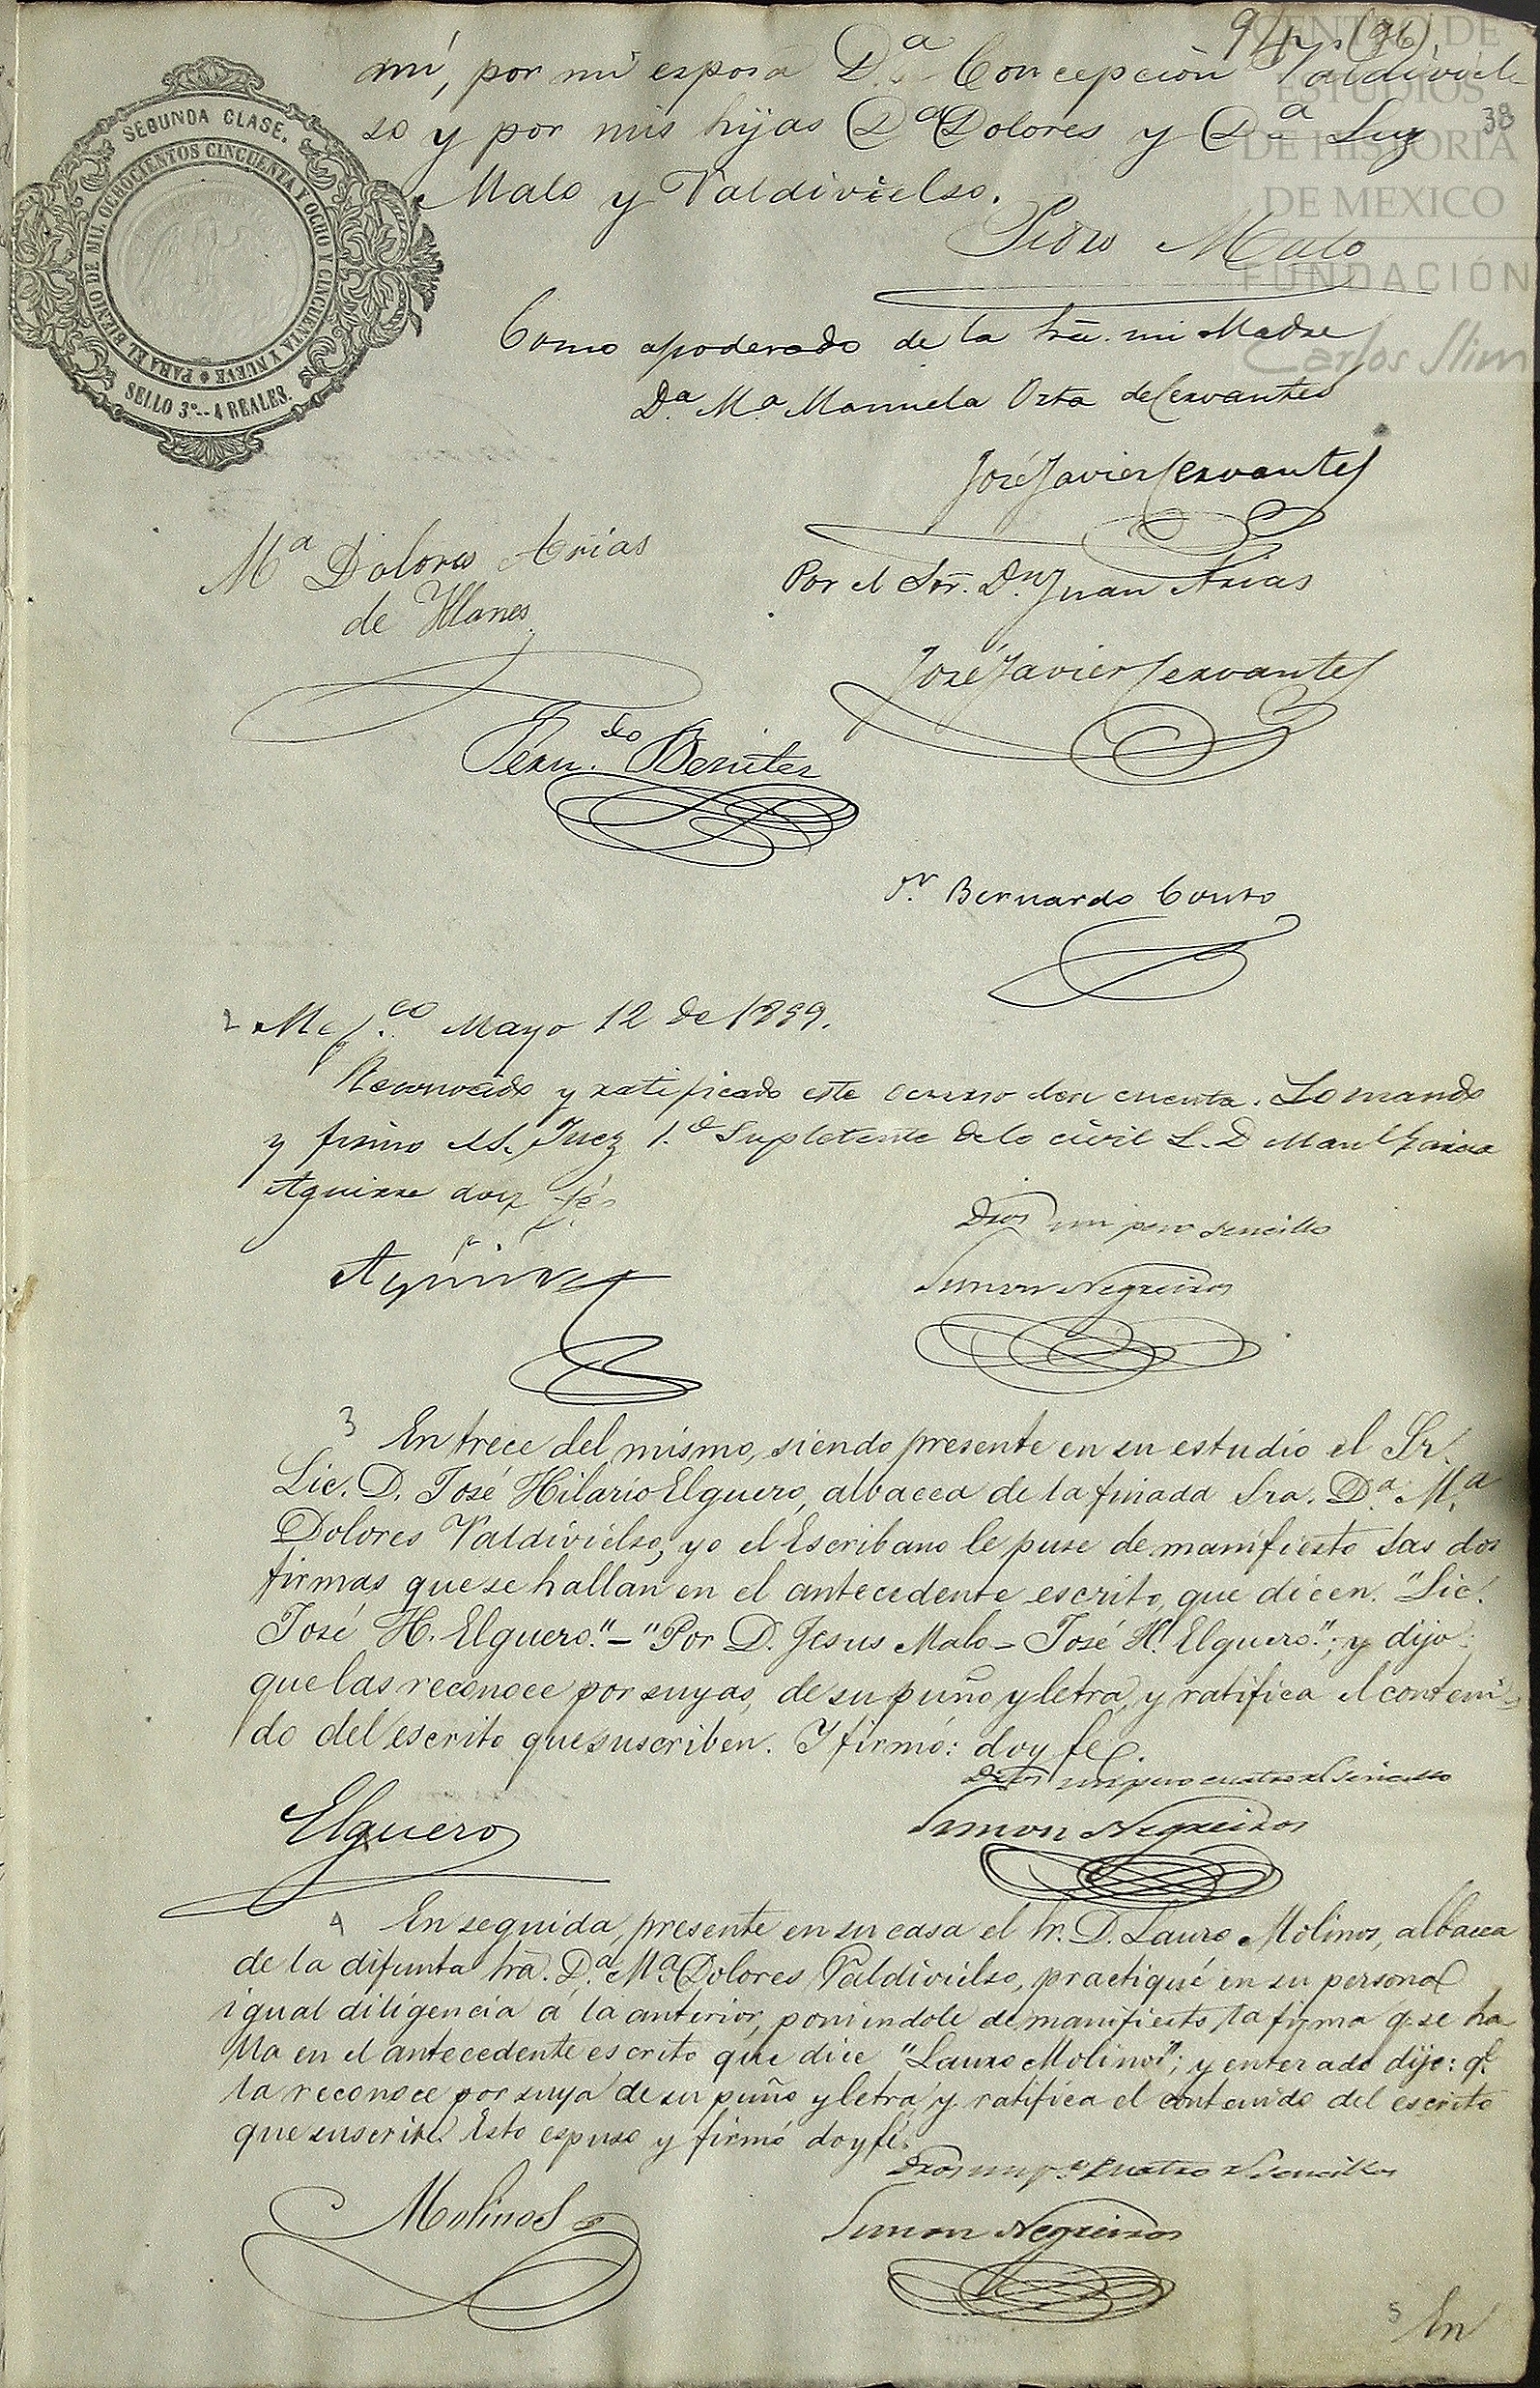 mí, por mi esposa D.ª Concepcion Valdiviel-
so y por mis hijas Dª Dolores y Dª Luz
Malo y Valdivielso.
38
Pedro Malo
SEGUNDA CLASE.
PARA EL BIENIO DE MIL OCHOCIENTOS CINCUENTA Y OCHO Y CINCUENTA Y NUEVE
SELLO 3º.--4 REALES.
CENTRO DE
ESTUDIOS
DE HISTORIA
DE MEXICO
FUNDACIÓN
Carlos Slim
Como apoderado de la Sra. mi Madre
D.ª M.ª Manuela Orta de Cervantes
José Javier Cervantes
Mª Dolores Arias
de Yllanes
Por el Sõr. D.n Juan Arias
José Javier Cervantes
Fern.do Benitez
Bernardo Couto
2 Mej.co Mayo 12 de 1859.
Reconocido y ratificado este ocurso dese cuenta. Lo mando
y firmo el S. Juez 1.º Suplente de lo civil L. D Manl Garcia
Aguirre doy fé
Dros un peso sencillo
Aguirre
Simon Negreiros
3 En trece del mismo, siendo presente en su estudio el Sr.
Lic. D. José Hilario Elguero, albacea de la finada Sra. D.ª M.ª
Dolores Valdivielso; yo el Escribano le puse de manifiesto las dos
firmas que se hallan en el antecedente escrito, que dicen. "Lic.
José H. Elguero."_"Por D. Jesus Malo_José H. Elguero."; y dijo:
que las reconoce por suyas, de su puño y letra, y ratifica el conteni-
do del escrito que suscriben. Y firmó: doy fe.
Dros un peso cuatro rs sencillo
Elguero
Simon Negreiros
4 En seguida, presente en su casa el Sr. D. Lauro Molinos, albacea
de la difunta Srã. D.ª Mª. Dolores Valdivielso, practiqué en su persona
igual diligencia á la anterior, poniendole de manifiesto la firma q. se ha
lla en el antecedente escrito que dice "Lauro Molinos"; y enterado dijo: q.e
la reconoce por suya de su puño y letra y ratifica el contenido del escrito
que suscribe. Esto espuso y firmó doy fé.
Dros un p.º cuatro rs sencillos
Molinos
Simon Negreiros
5 En